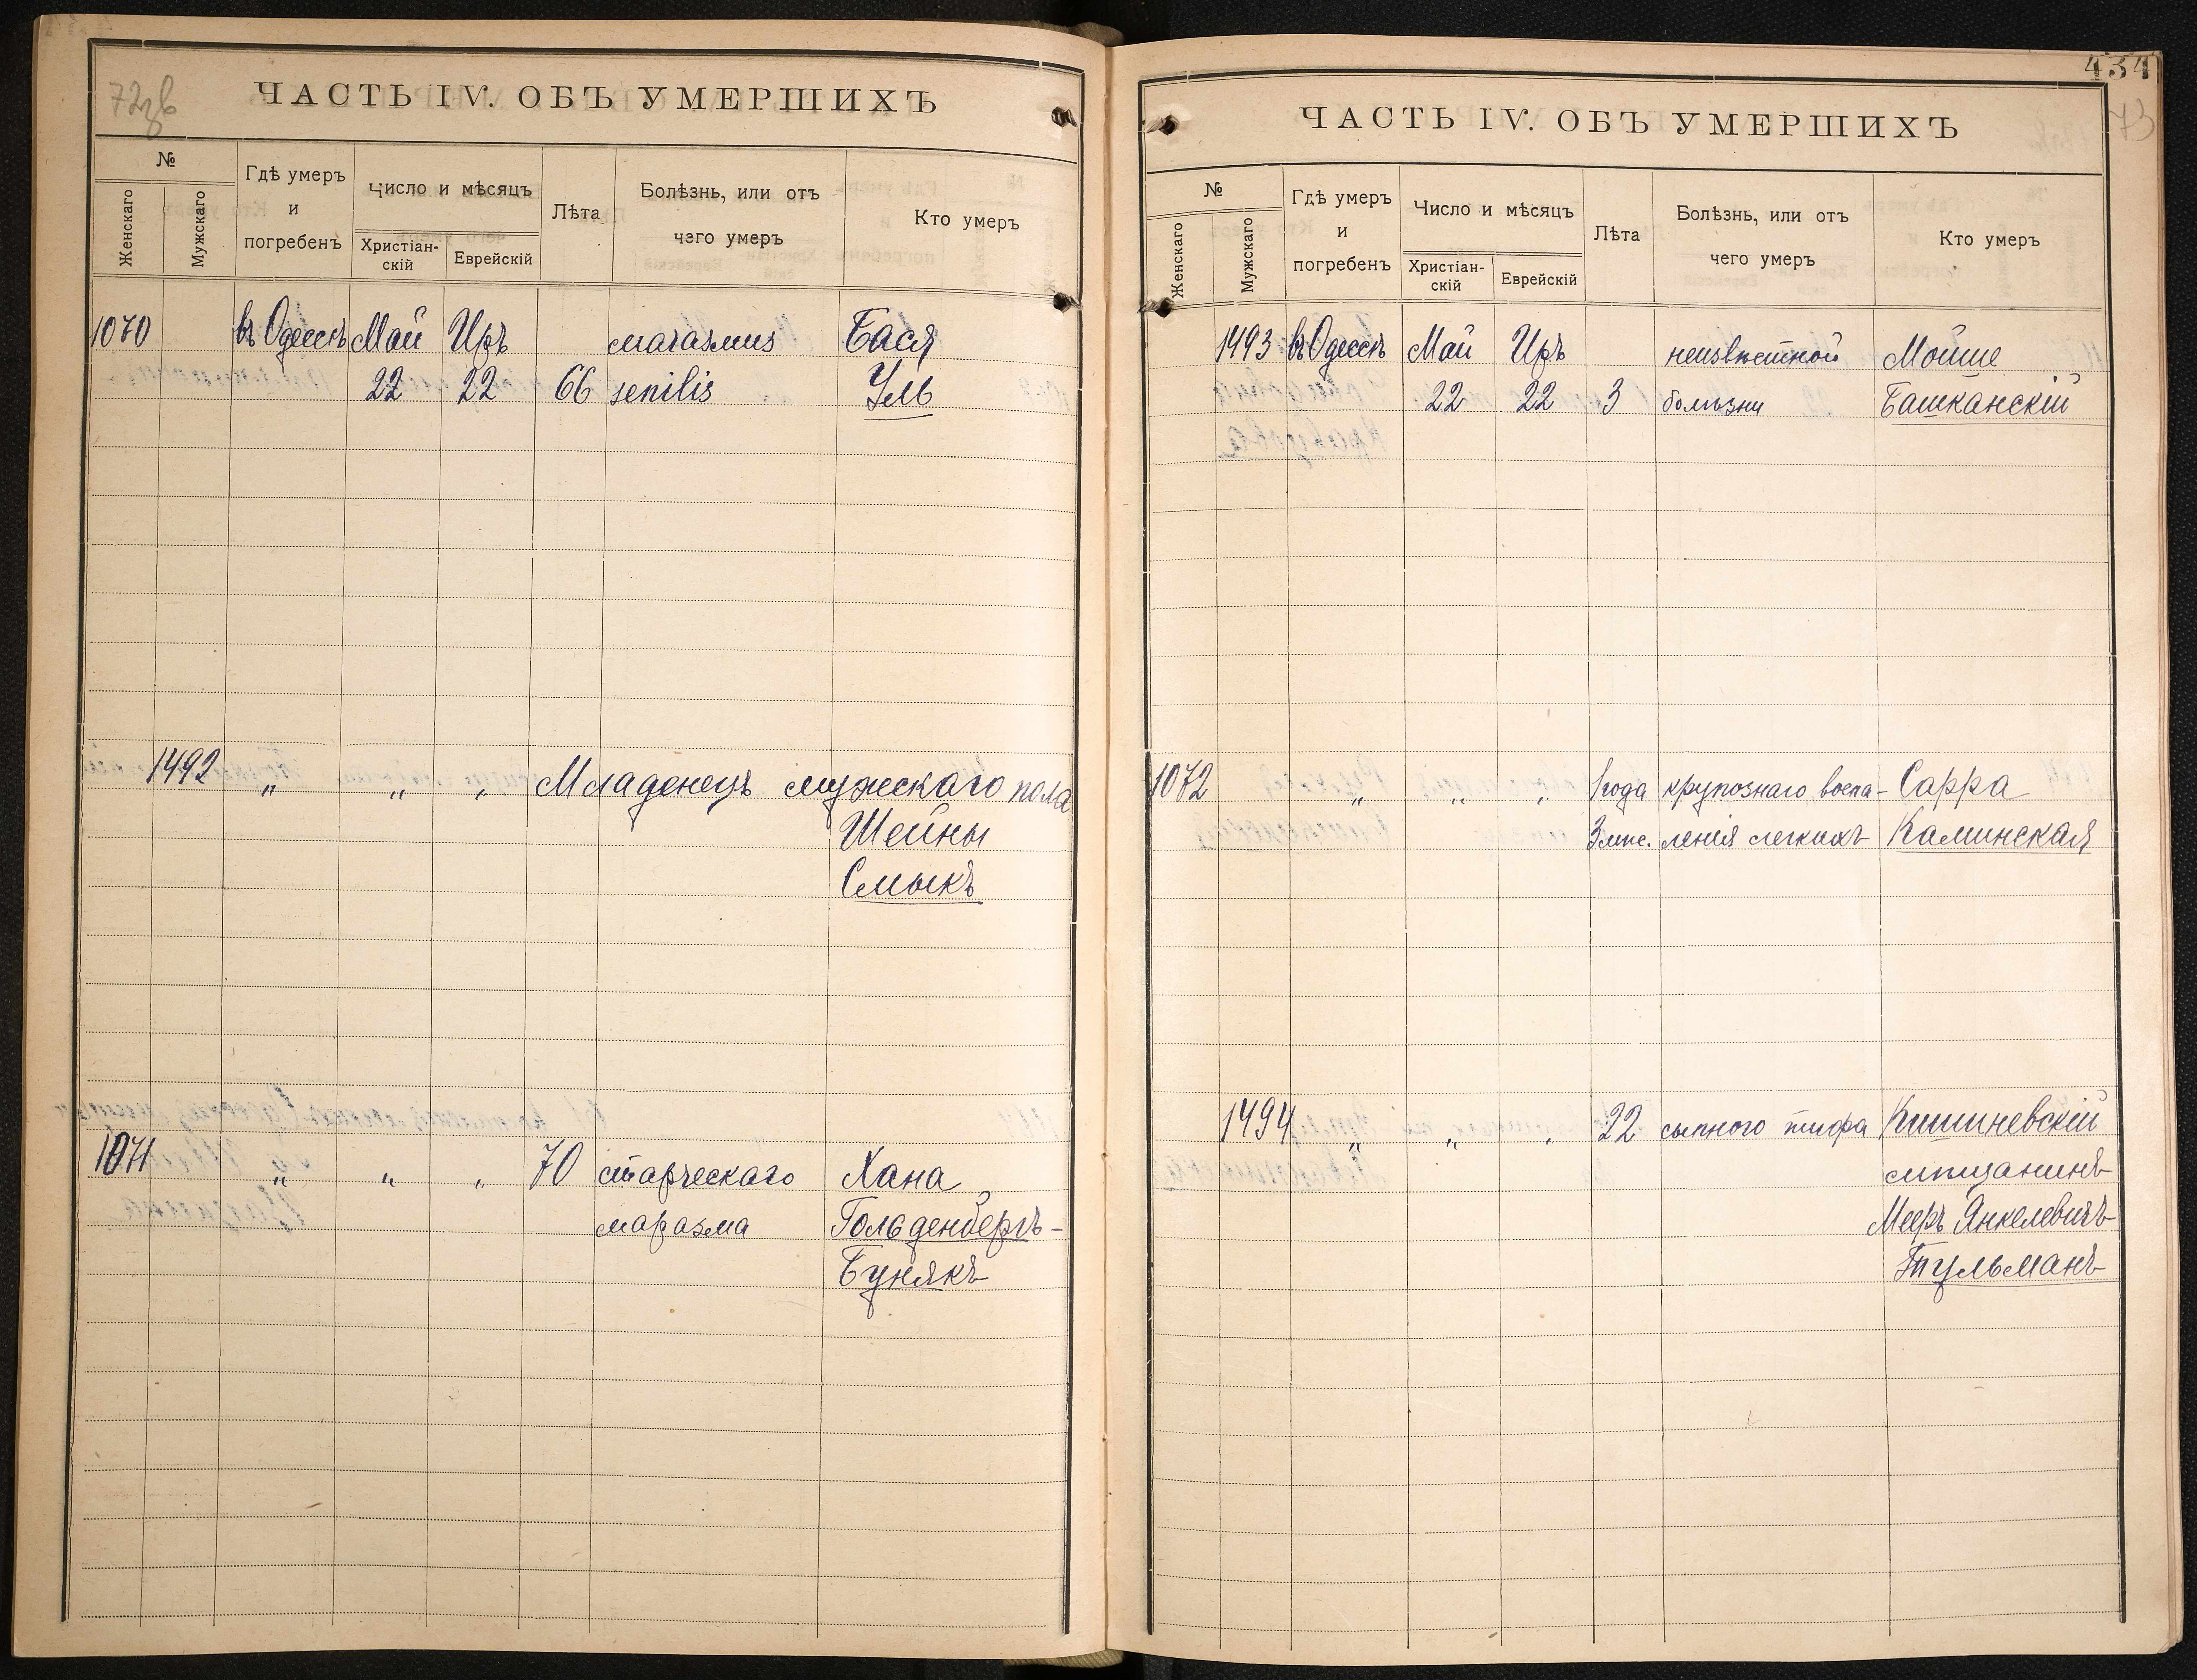 72зв
ЧАСТЬ IV. ОБЪ УМЕРШИХЪ
№
Женскаго
Мужскаго
Гдѣ умеръ
и
погребенъ
Число и мѣсяцъ
Христіан-
скій
Еврейскій
Лѣта
Болѣзнь, или отъ
чего умеръ
Кто умеръ
1070 въ Одессѣ Май Иръ marasmus Бася
22 22 66 senilis Уль
1492 „ „ „ Младенецъ мужескаго пола
Шейны
Смыкъ
1071 „ „ „ 70 старческаго Хана
маразма Гольденбергъ-
Бунякъ
434
73
ЧАСТЬ IV. ОБЪ УМЕРШИХЪ
№
Женскаго
Мужскаго
Гдѣ умеръ
и
погребенъ
Число и мѣсяцъ
Христіан-
скій
Еврейскій
Лѣта
Болѣзнь, или отъ
чего умеръ
Кто умеръ
1493 въ Одессѣ Май Иръ неизвѣстной Мойше
22 22 3 болѣзни Башканскій
1072 „ „ „ 1 года крупознаго воспа- Сарра
3 мѣс. ленія легкихъ Каминская
1494 „ „ „ 22 сыпного тифа Кишиневскій
мѣщанинъ
Мееръ Янкелевичъ
Тульманъ